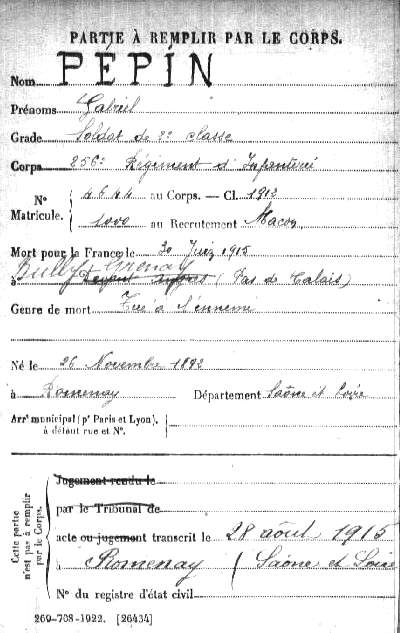 PARTIE À REMPLIR PAR LE CORPS.
Nom PÉPIN
Prénoms Gabriel
Grade Soldat de 2e classe
Corps 256e Régiment d'Infanterie
N° Matricule. { 4644 au Corps. — Cl. 1912
1000 au Recrutement Macon
Mort pour la France le 30 Juin 1915
à Bully Grenay (Pas de Calais)
Genre de mort Tué à l'ennemi
Né le 26 Novembre 1892
à Romenay Département Saône et Loire
Arrt municipal (pr Paris et Lyon), à défaut rue et N°.
Cette partie n'est pas à remplir par le Corps.
Jugement rendu le
par le Tribunal de
acte ou jugement transcrit le 28 août 1915
à Romenay (Saône et Loire
N° du registre d'état civil
269-708-1922. [26434]